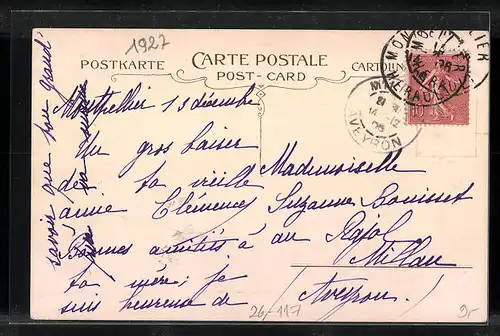 1927
CARTE POSTALE
POSTKARTE
POST-CARD
MONTPELLIER
HERAULT
MILLAU
AVEYRON
Montpellier 13 décembre
Un gros baiser
de ta vieille
anne Clémence
Bonnes amitiés à
ta mère; je
suis heureuse de
savoir que ton grand
Mademoiselle
Suzanne Bouisset
au Rajol
Millau
Aveyron
26-117
9.-